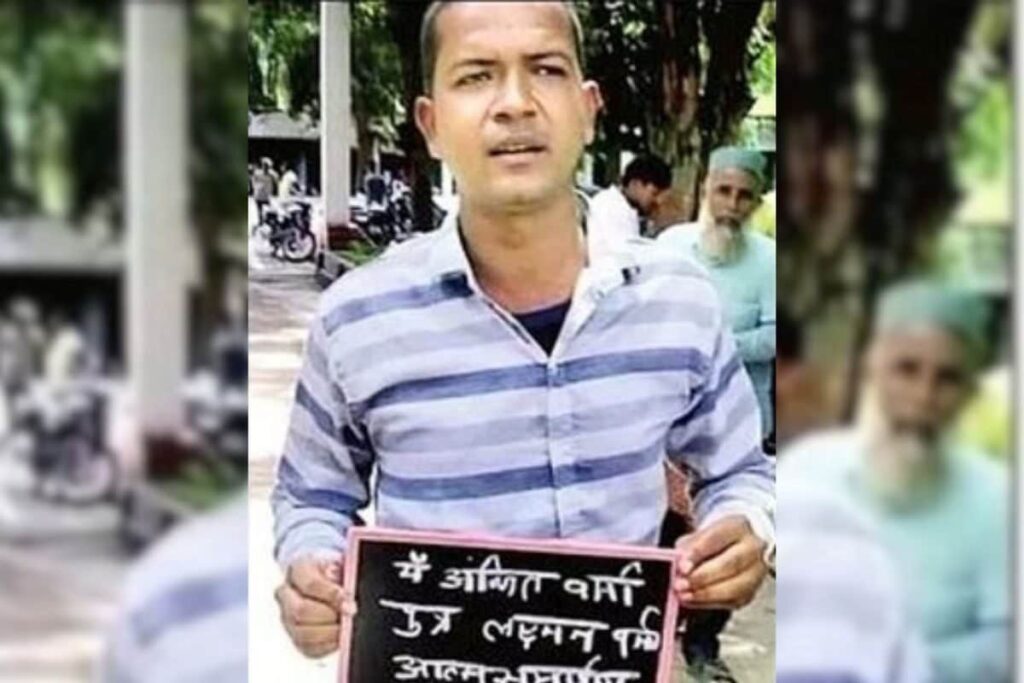 मैं अंकित वर्मा
पुत्र लक्ष्मन वर्मा
आत्मसमर्पण